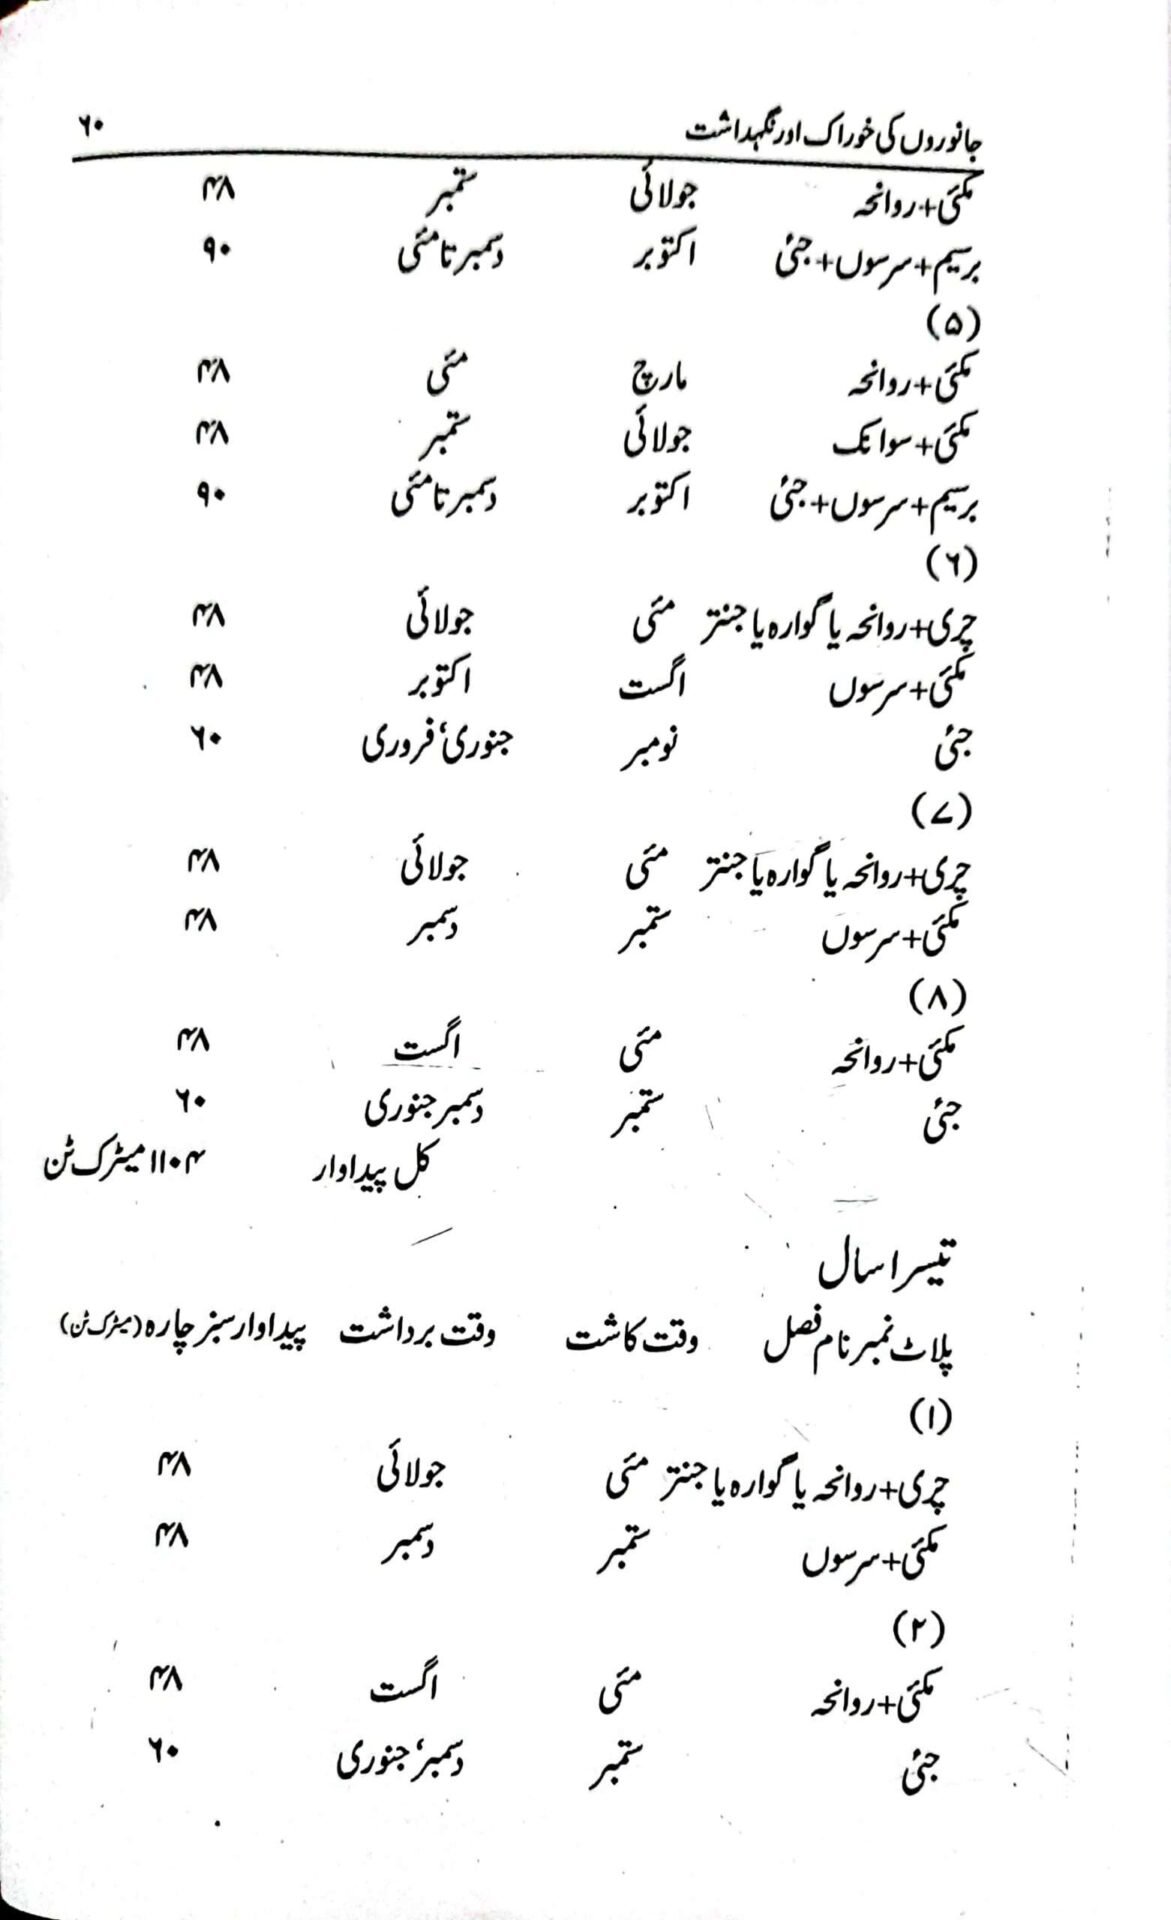 جانوروں کی خوراک اور نگہداشت ۶۰
مکئی+روانحہ جولائی ستمبر ۴۸
برسیم+سرسوں+جئی اکتوبر دسمبر تا مئی ۹۰
(۵)
مکئی+روانحہ مارچ مئی ۴۸
مکئی+سوانک جولائی ستمبر ۴۸
برسیم+سرسوں+جئی اکتوبر دسمبر تا مئی ۹۰
(۶)
چری+روانحہ یا گوارہ یا جنتر مئی جولائی ۴۸
مکئی+سرسوں اگست اکتوبر ۴۸
جئی نومبر جنوری، فروری ۶۰
(۷)
چری+روانحہ یا گوارہ یا جنتر مئی جولائی ۴۸
مکئی+سرسوں ستمبر دسمبر ۴۸
(۸)
مکئی+روانحہ مئی اگست ۴۸
جئی ستمبر دسمبر جنوری ۶۰
کل پیداوار ۱۱۰۴ میٹرک ٹن
تیسرا سال
پلاٹ نمبر نام فصل وقت کاشت وقت برداشت پیداوار سبز چارہ (میٹرک ٹن)
(۱)
چری+روانحہ یا گوارہ یا جنتر مئی جولائی ۴۸
مکئی+سرسوں ستمبر دسمبر ۴۸
(۲)
مکئی+روانحہ مئی اگست ۴۸
جئی ستمبر دسمبر، جنوری ۶۰